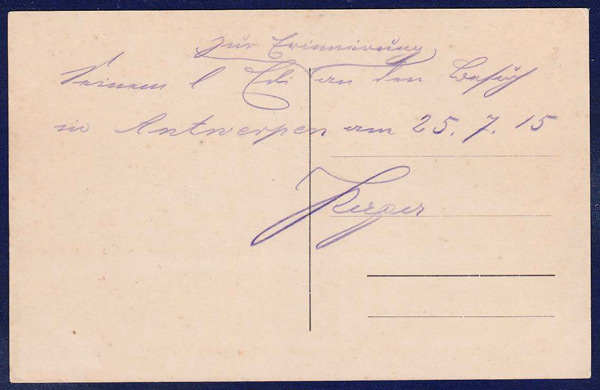 Zur Erinnerung
Seinem l Edi an den Besuch
in Antwerpen am 25. 7. 15